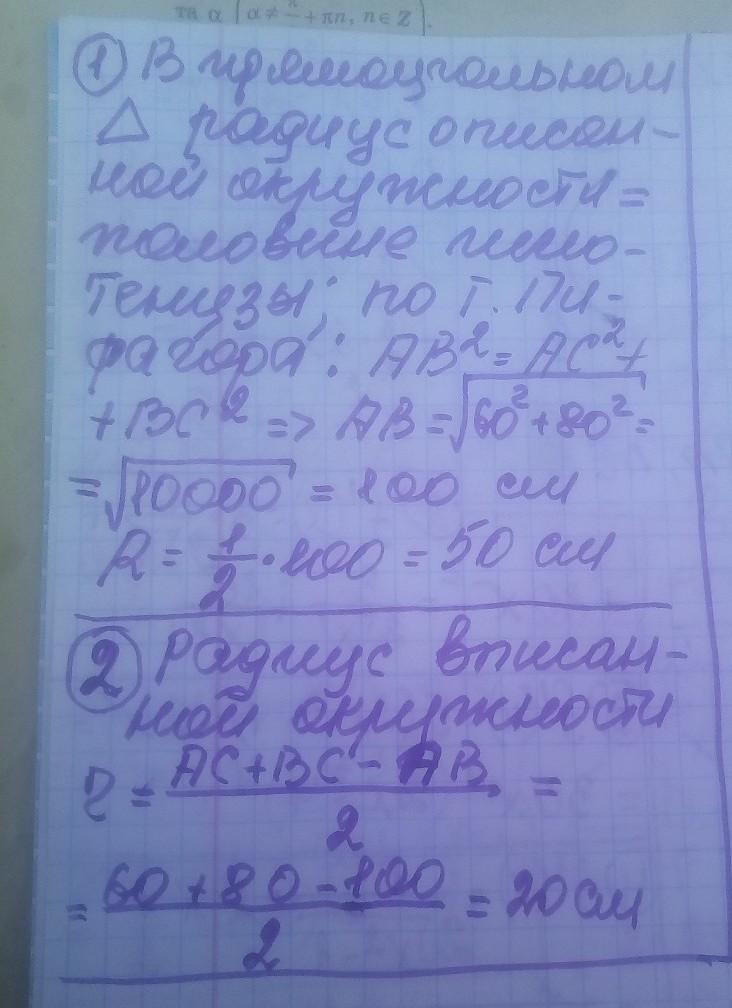 тн α (α ≠ π/2 + πn, n ∈ Z).
① В прямоугольном
△ радиус описан-
ной окружности =
половине гипо-
тенузы; по т. Пи-
фагора: AB² = AC² +
+ BC² => AB = √(60² + 80²) =
= √10000 = 100 см
R = 1/2 · 100 = 50 см
② Радиус вписан-
ной окружности
r = (AC + BC - AB)/2 =
= (60 + 80 - 100)/2 = 20 см